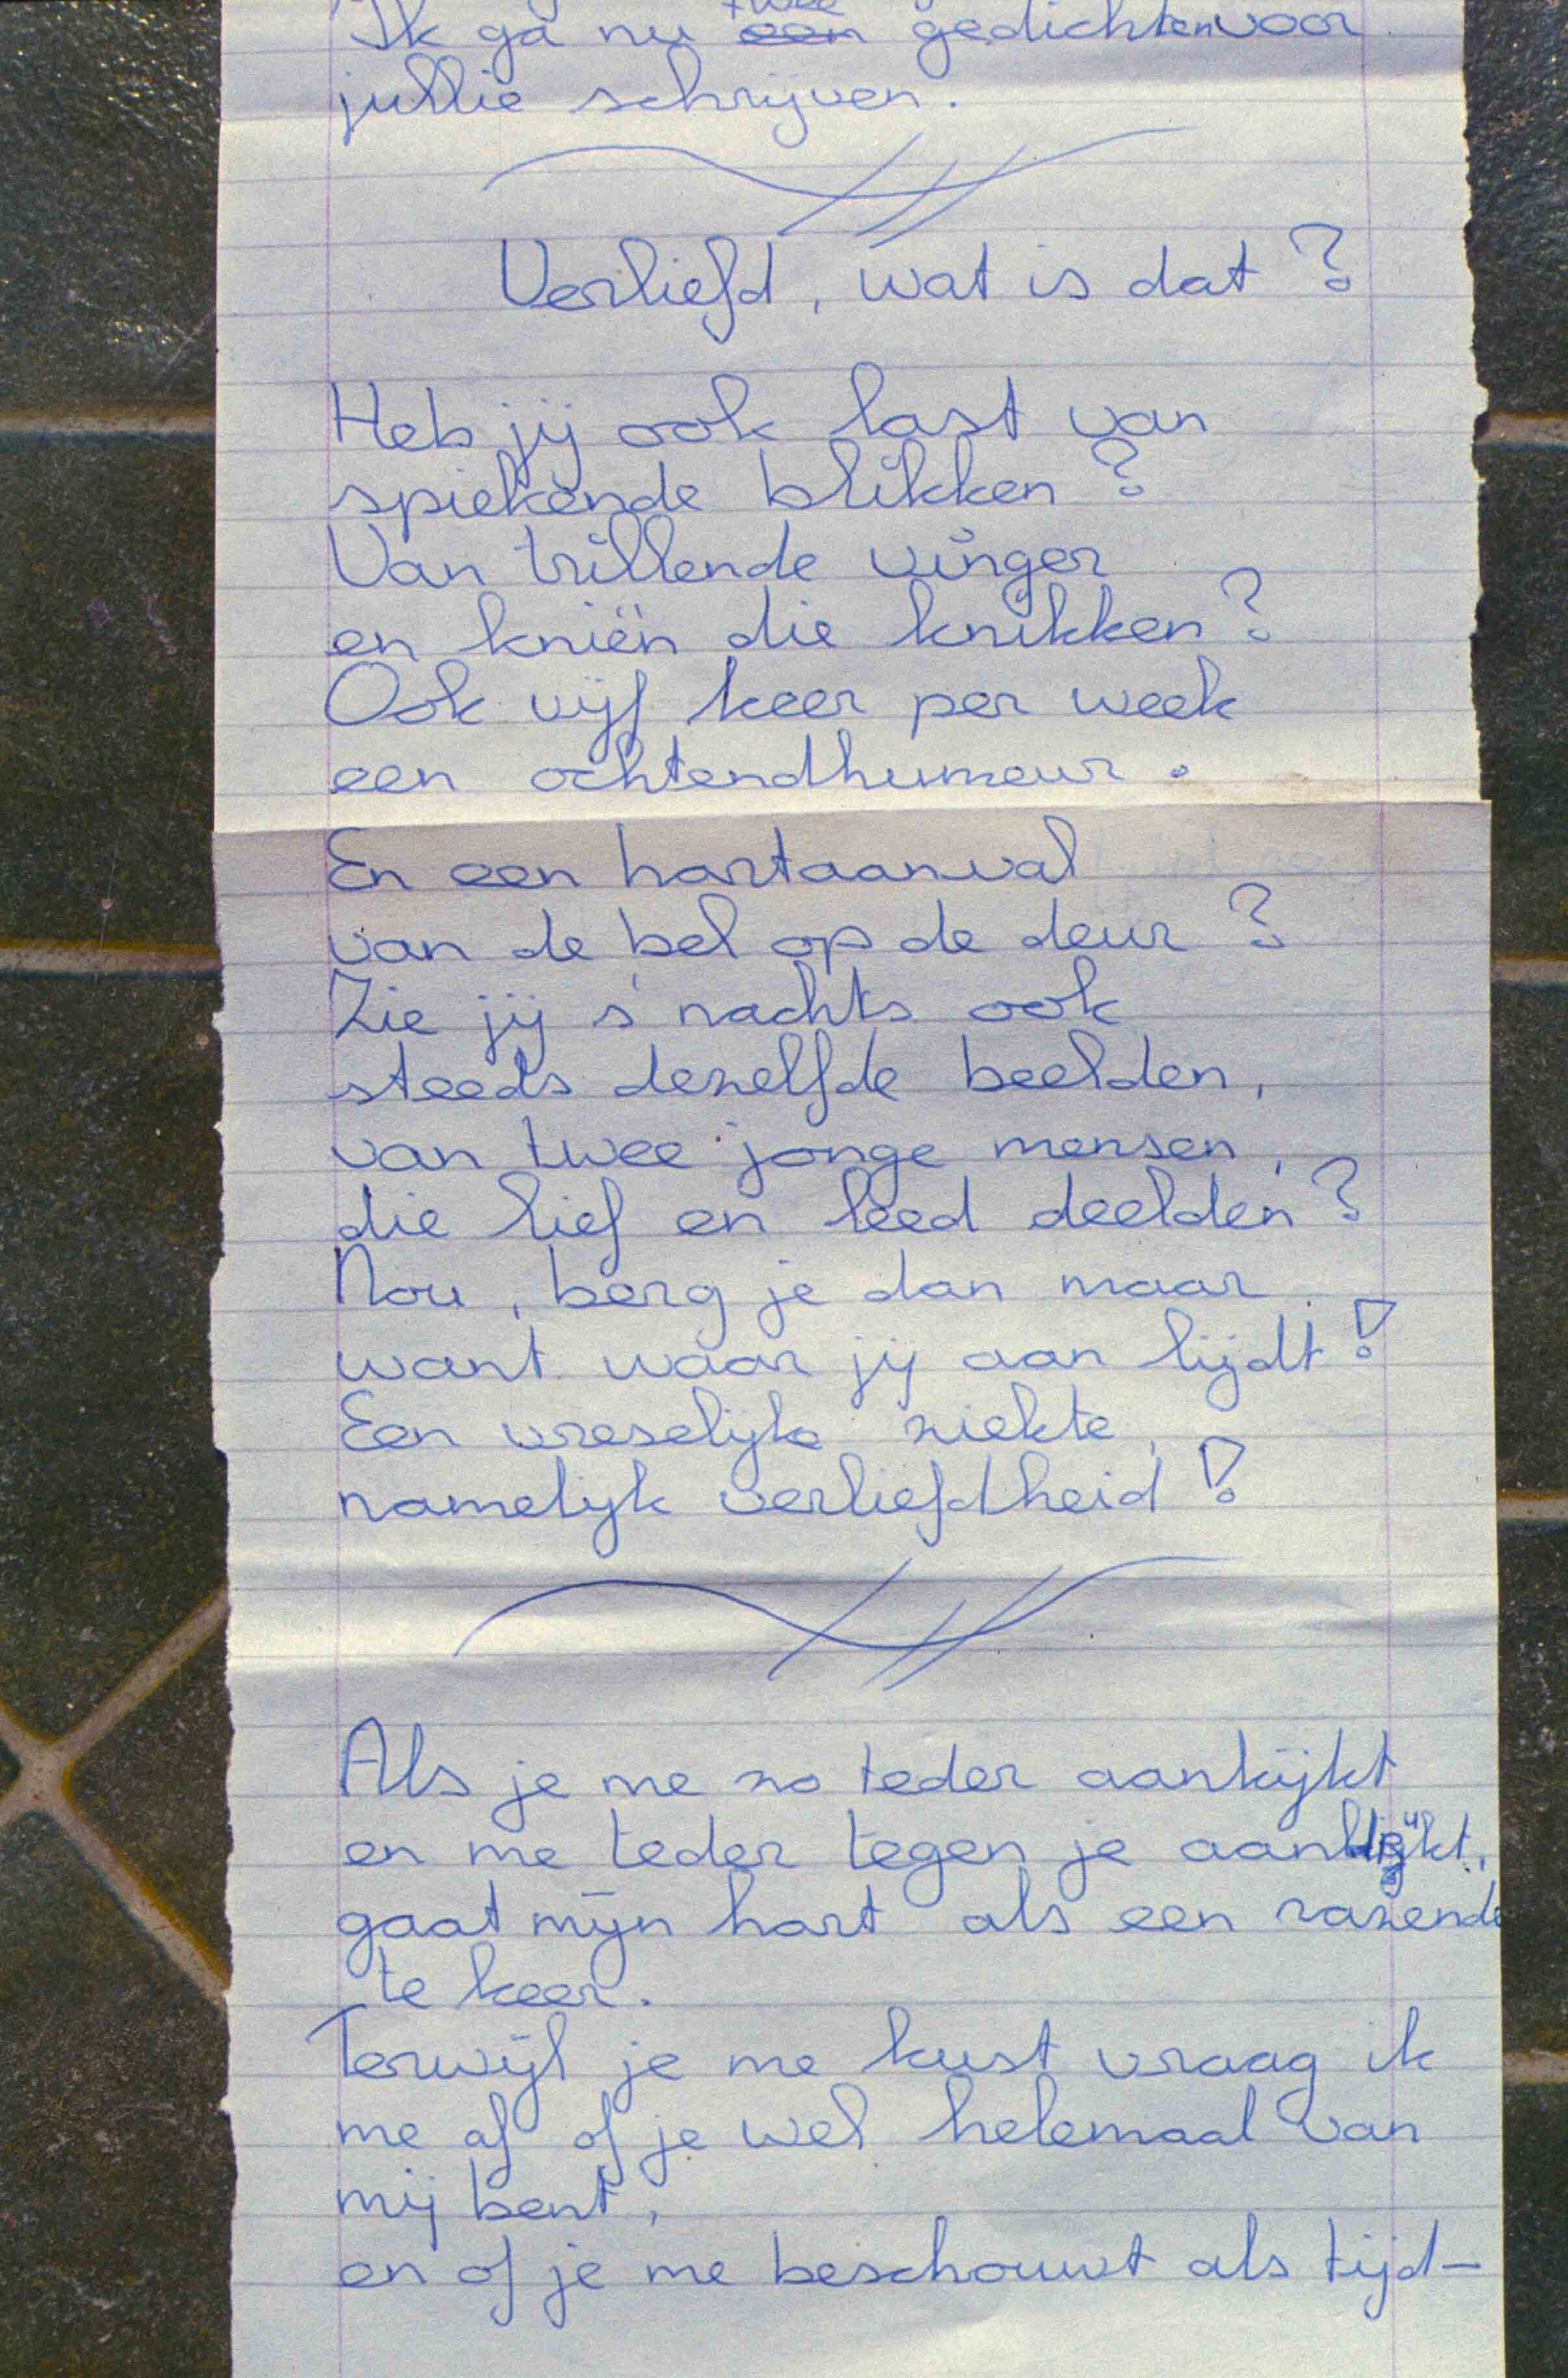 Ik ga nu twee gedichten voor
jullie schrijven.
Verliefd, wat is dat?
Heb jij ook last van
spiekende blikken?
Van trillende vinger
en kniën die knikken?
Ook vijf keer per week
een ochtendhumeur.
En een hartaanval
van de bel op de deur?
Zie jij s'nachts ook
steeds dezelfde beelden,
van twee jonge mensen,
die lief en leed deelden?
Nou, berg je dan maar
want waar jij aan lijdt!
Een vreselijke ziekte,
namelijk verliefdheid!
Als je me zo teder aankijkt
en me teder tegen je
gaat mijn hart als een razende
te keer.
Terwijl je me kust vraag ik
me af of je wel helemaal van
mij bent,
en of je me beschouwt als tijd-